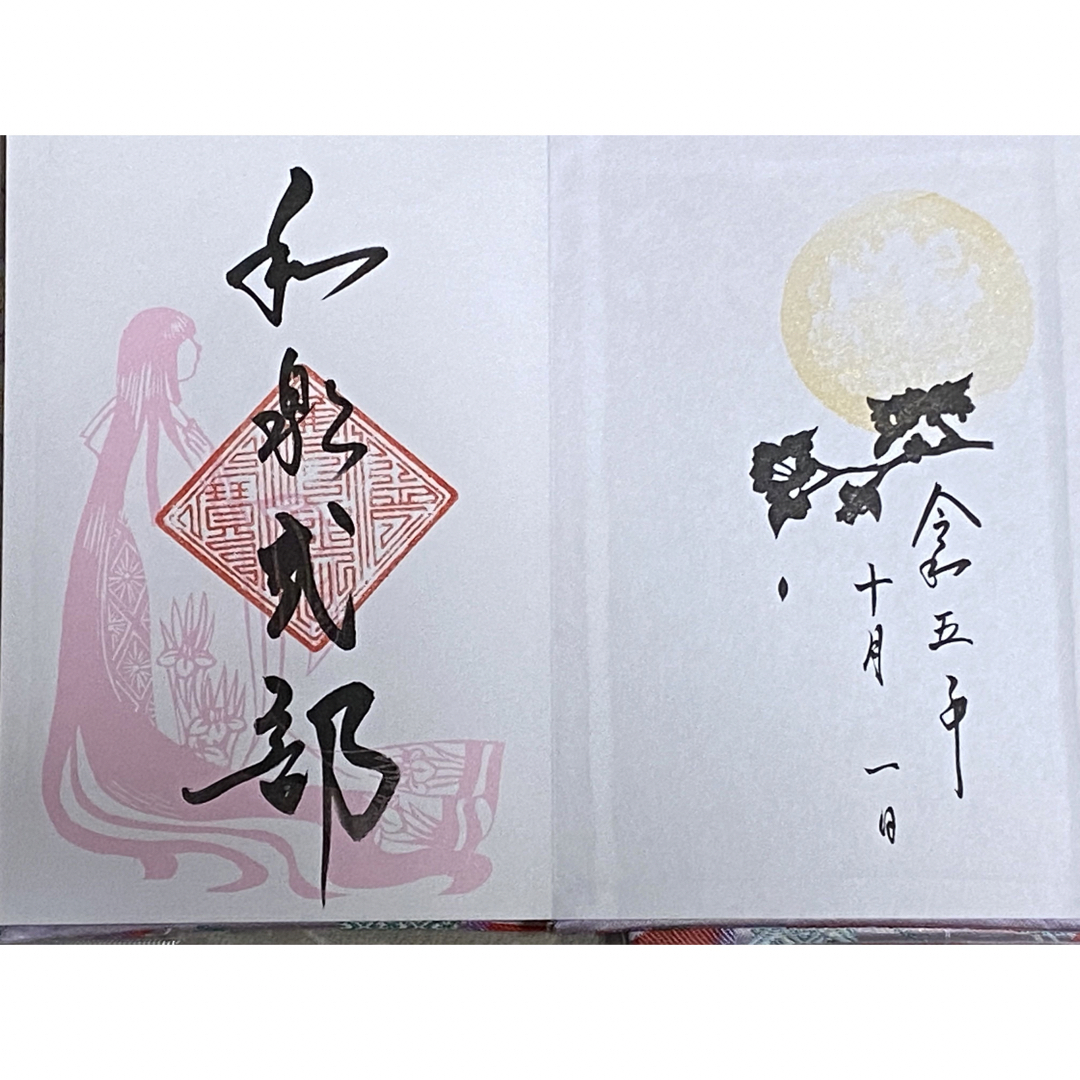 令和五年
十月一日
和泉式部